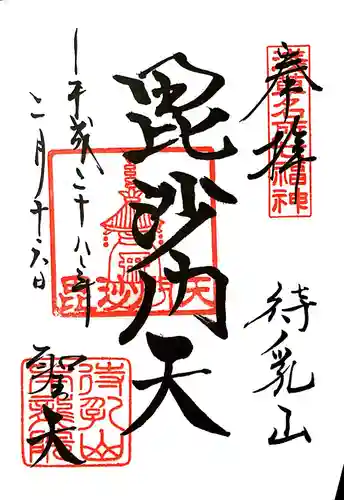 奉拝
待乳山
毘沙門天
平成二十八年
二月十六日
聖天
浅草名所七福神
毘沙門天
待乳山